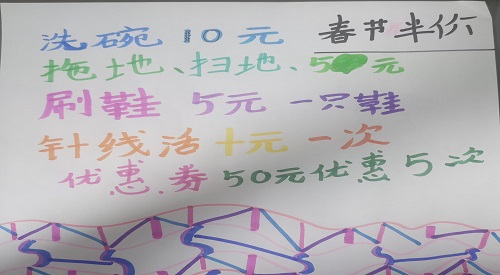 洗碗 10元 春节半价
拖地、扫地、5元
刷鞋 5元 一只鞋
针线活 十元 一次
优惠券 50元优惠5次